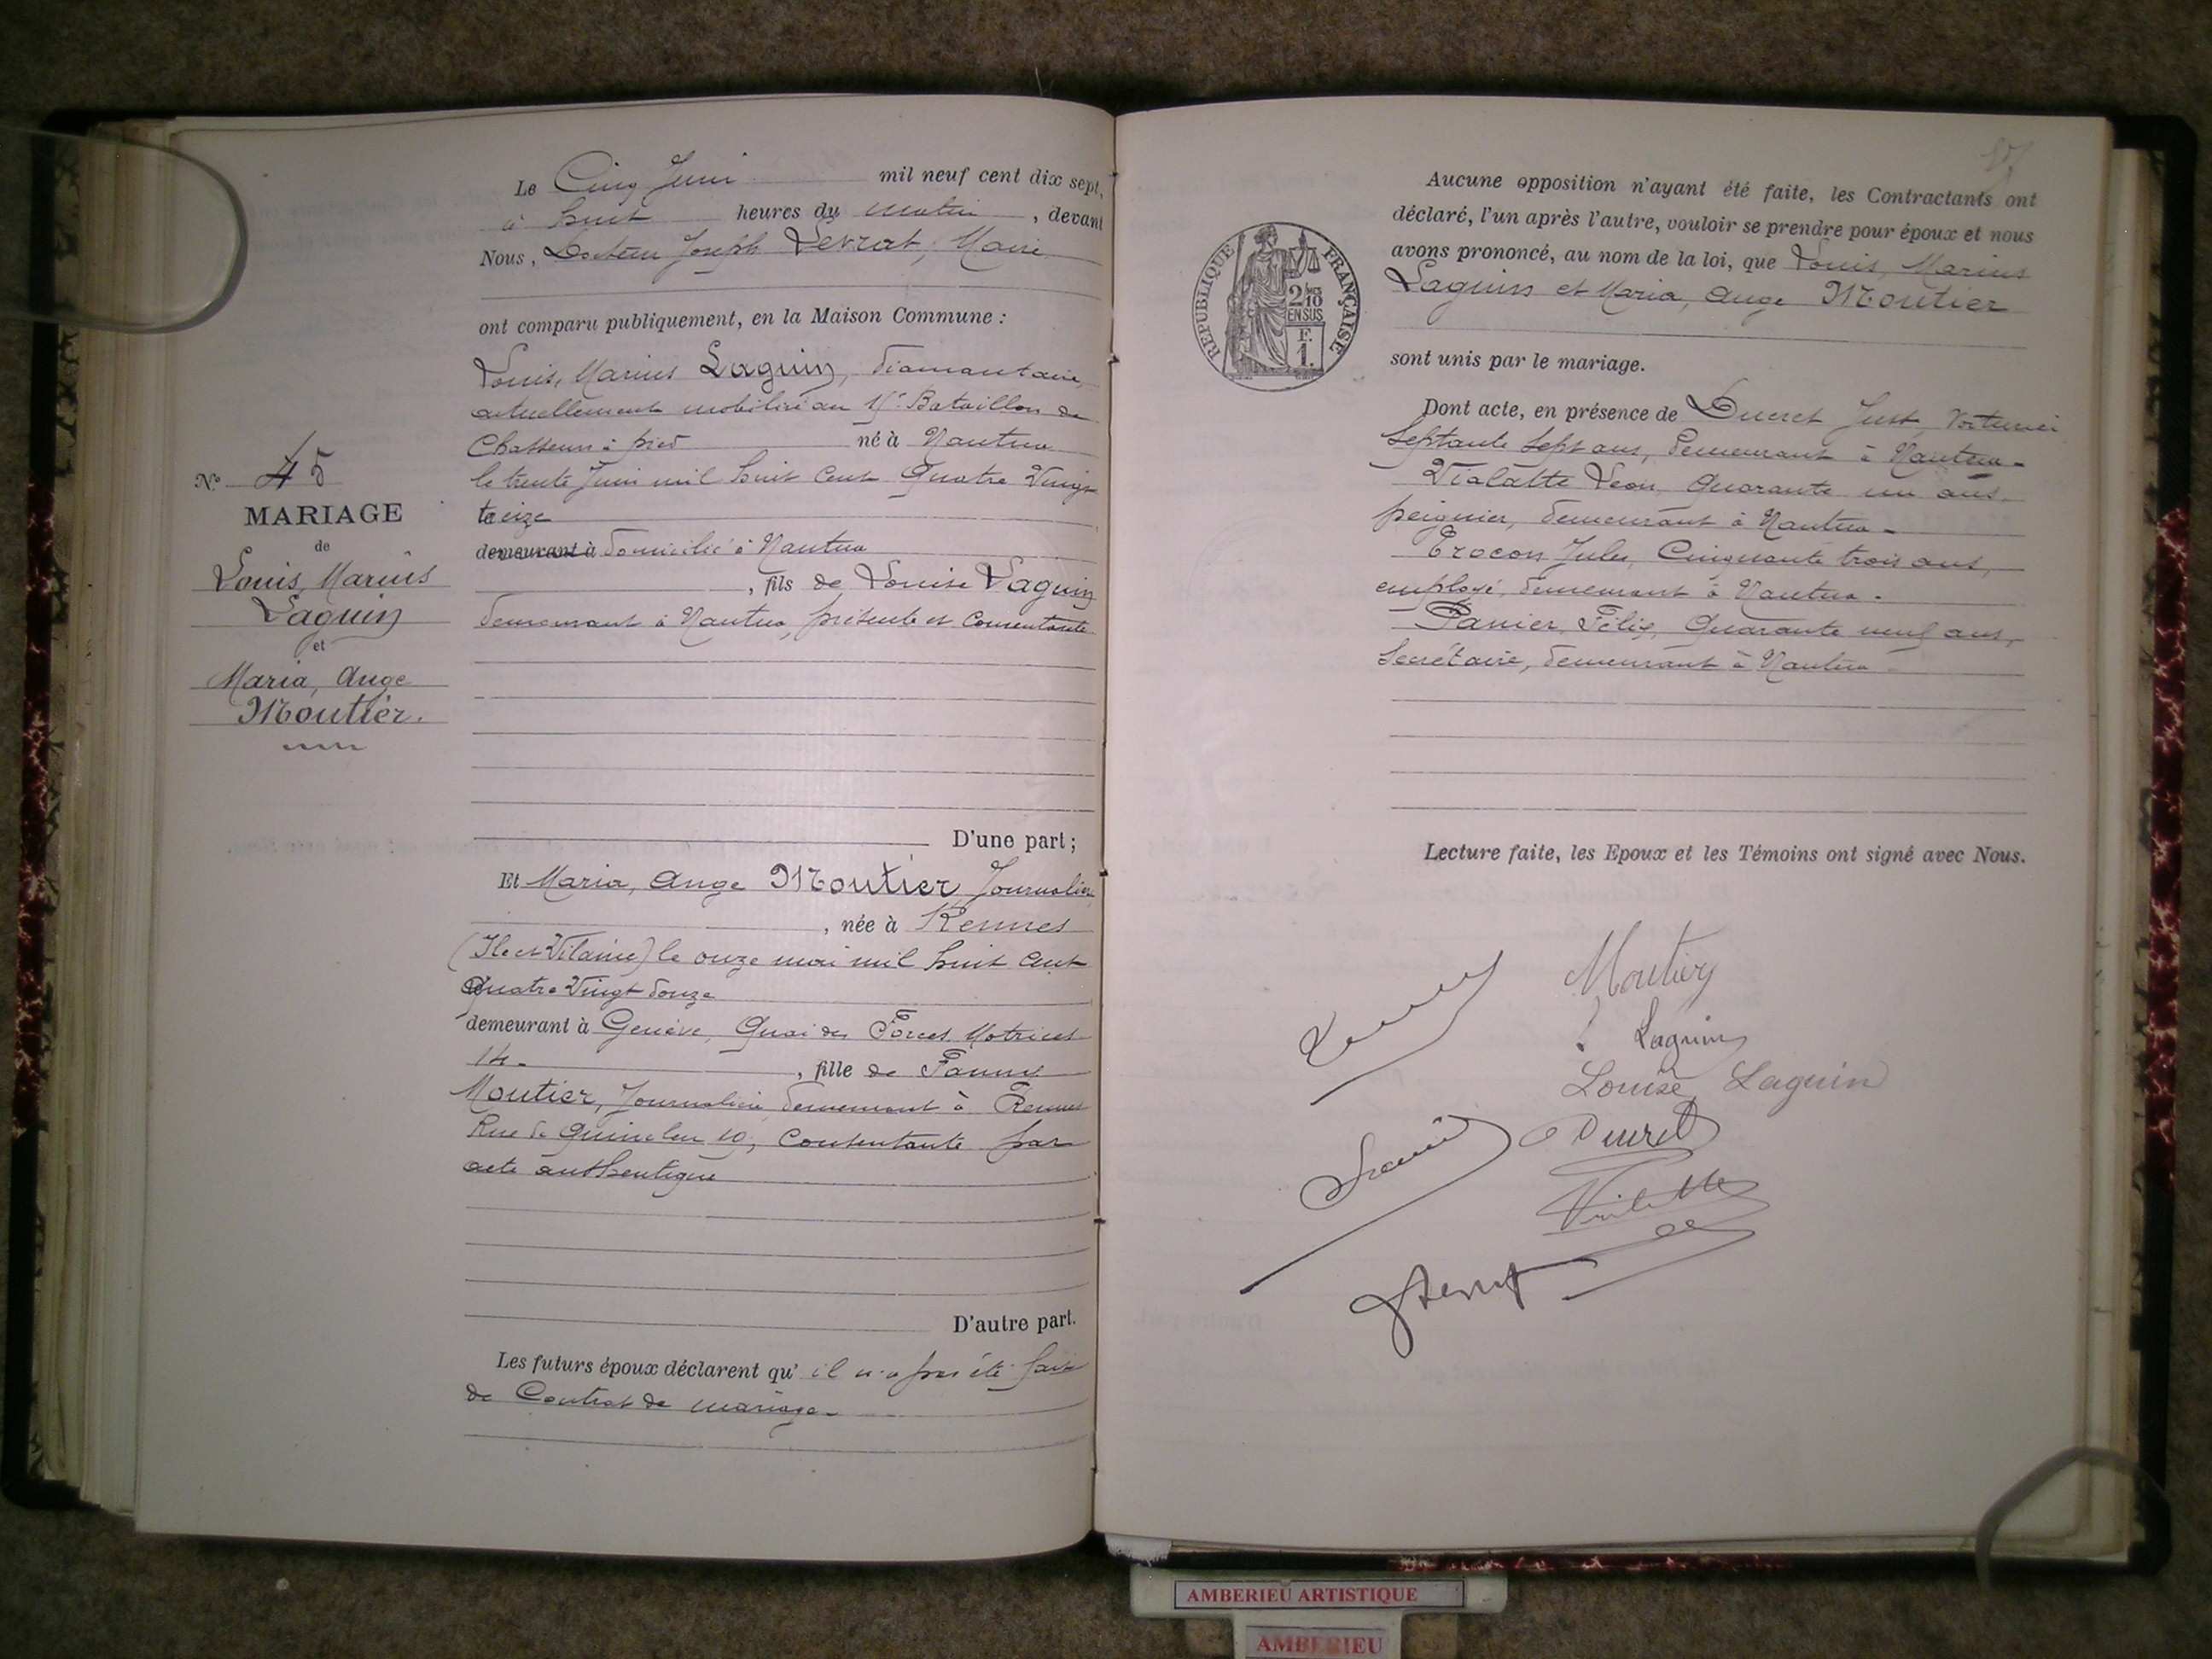 Le Cinq Juin mil neuf cent dix sept,
à huit heures du matin, devant
Nous, Docteur Joseph Levrat, Maire
ont comparu publiquement, en la Maison Commune :
Louis, Marius Laguin, diamantaire,
actuellement mobilisé au Bataillon de
Chasseurs à pied né à Nantua
le trente Juin mil huit cent Quatre Vingt
treize
demeurant à domicilié à Nantua
, fils de Louise Laguin
demeurant à Nantua, présente et consentante
D'une part ;
N° 45
MARIAGE
de
Louis, Marius
Laguin
et
Maria, Ange
Moutier.
Et Maria, Ange Moutier, Journalière
, née à Rennes
(Ile et Vilaine) le onze mai mil huit cent
Quatre Vingt douze
demeurant à Genève, Quai des Forces Motrices
14 - , fille de Fanny
Moutier, Journalière, demeurant à Rennes
Rue de 10, consentante par
acte authentique
D'autre part.
Les futurs époux déclarent qu' il n'a pas été fait
de Contrat de mariage -
Aucune opposition n'ayant été faite, les Contractants ont
déclaré, l'un après l'autre, vouloir se prendre pour époux et nous
avons prononcé, au nom de la loi, que Louis, Marius
Laguin et Maria, Ange Moutier
sont unis par le mariage.
REPUBLIQUE FRANÇAISE
2/10
EN SUS
F.
1.
Dont acte, en présence de Ducret Just, Voiturier
Septante Sept ans, demeurant à Nantua -
Vialatte Léon, Quarante un ans,
peignier, demeurant à Nantua -
Jules, Cinquante trois ans,
employé, demeurant à Nantua -
Panier, Félix, Quarante neuf ans,
Secrétaire, demeurant à Nantua -
Lecture faite, les Epoux et les Témoins ont signé avec Nous.
Moutier
Laguin
Louise Laguin
Ducret
AMBERIEU ARTISTIQUE
AMBERIEU